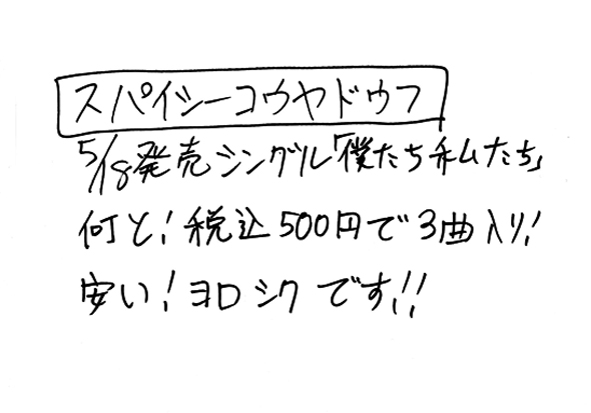 スパイシーコウヤドウフ
5/18発売シングル「僕たち私たち」
何と!税込500円で3曲入り!
安い!ヨロシクです!!